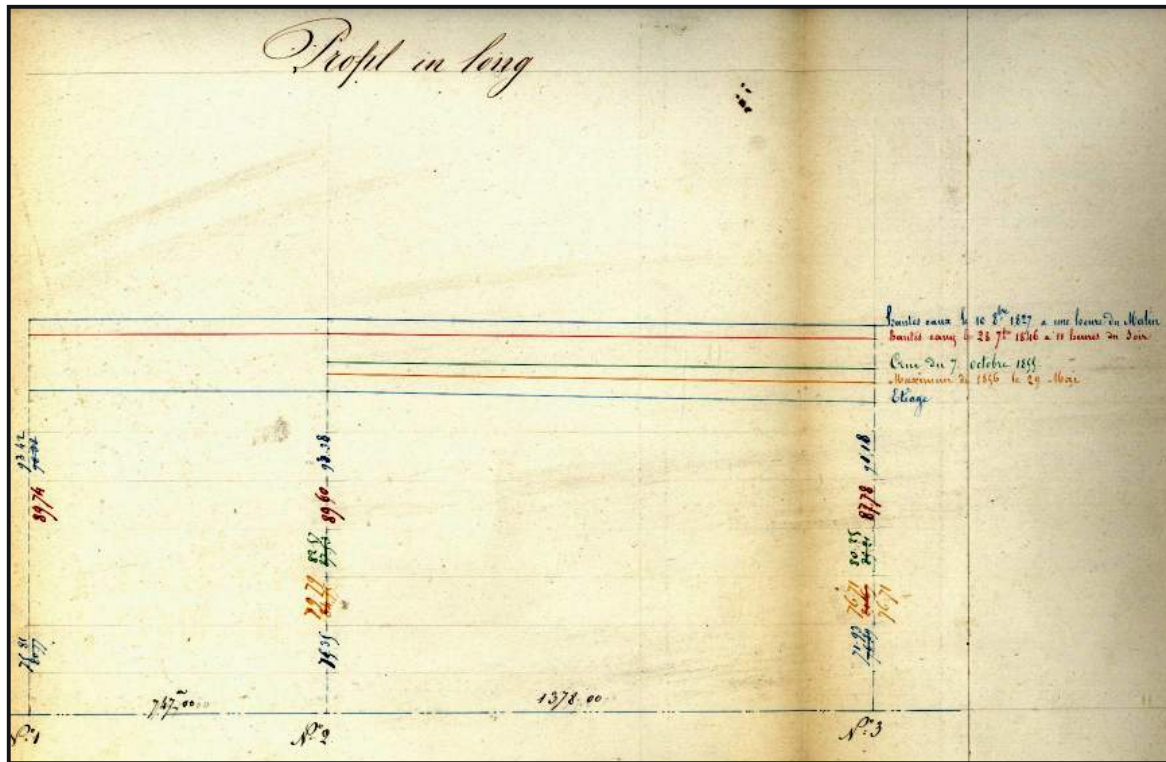 Profil en long
hautes eaux le 10 8bre 1827 a une heure du Matin
hautes eaux le 28 7bre 1846 a 11 heures du Soir
Crue du 7 octobre 1855
Maximum de 1856 le 29 Mai
Etiage
93.42
89.74
89.60
82.51
79.71
75.35
87.78
80.35
76.71
76.71
747m00
1378.00
N.° 1
N.° 2
N.° 3